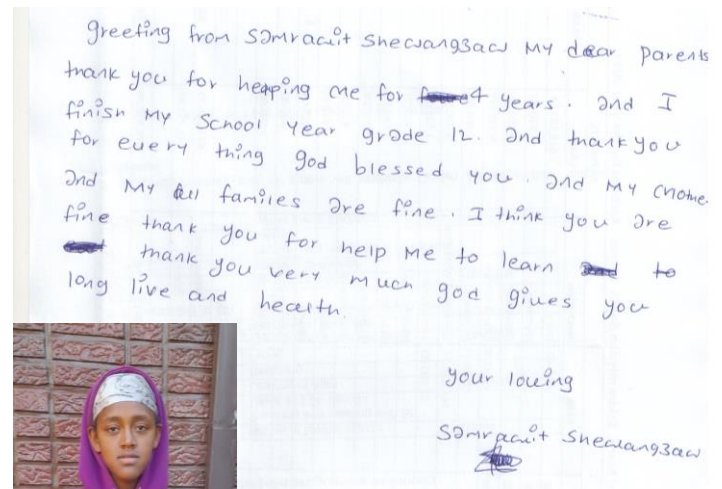 greeting from Samrawit Shewangzaw My dear parents
thank you for heaping me for 4 years. And I
finish My School year grade 12. And thank you
for every thing god blessed you. And My
And My all familes are fine. I think you are
fine thank you for help me to learn to
thank you very much god gives you
long live and health.
your loving
Samrawit Shewangzaw